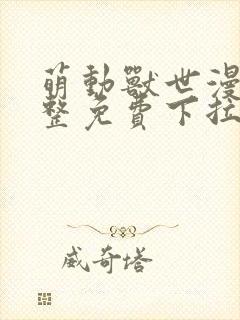 萌動獸世漫
整免費下拉
威奇塔